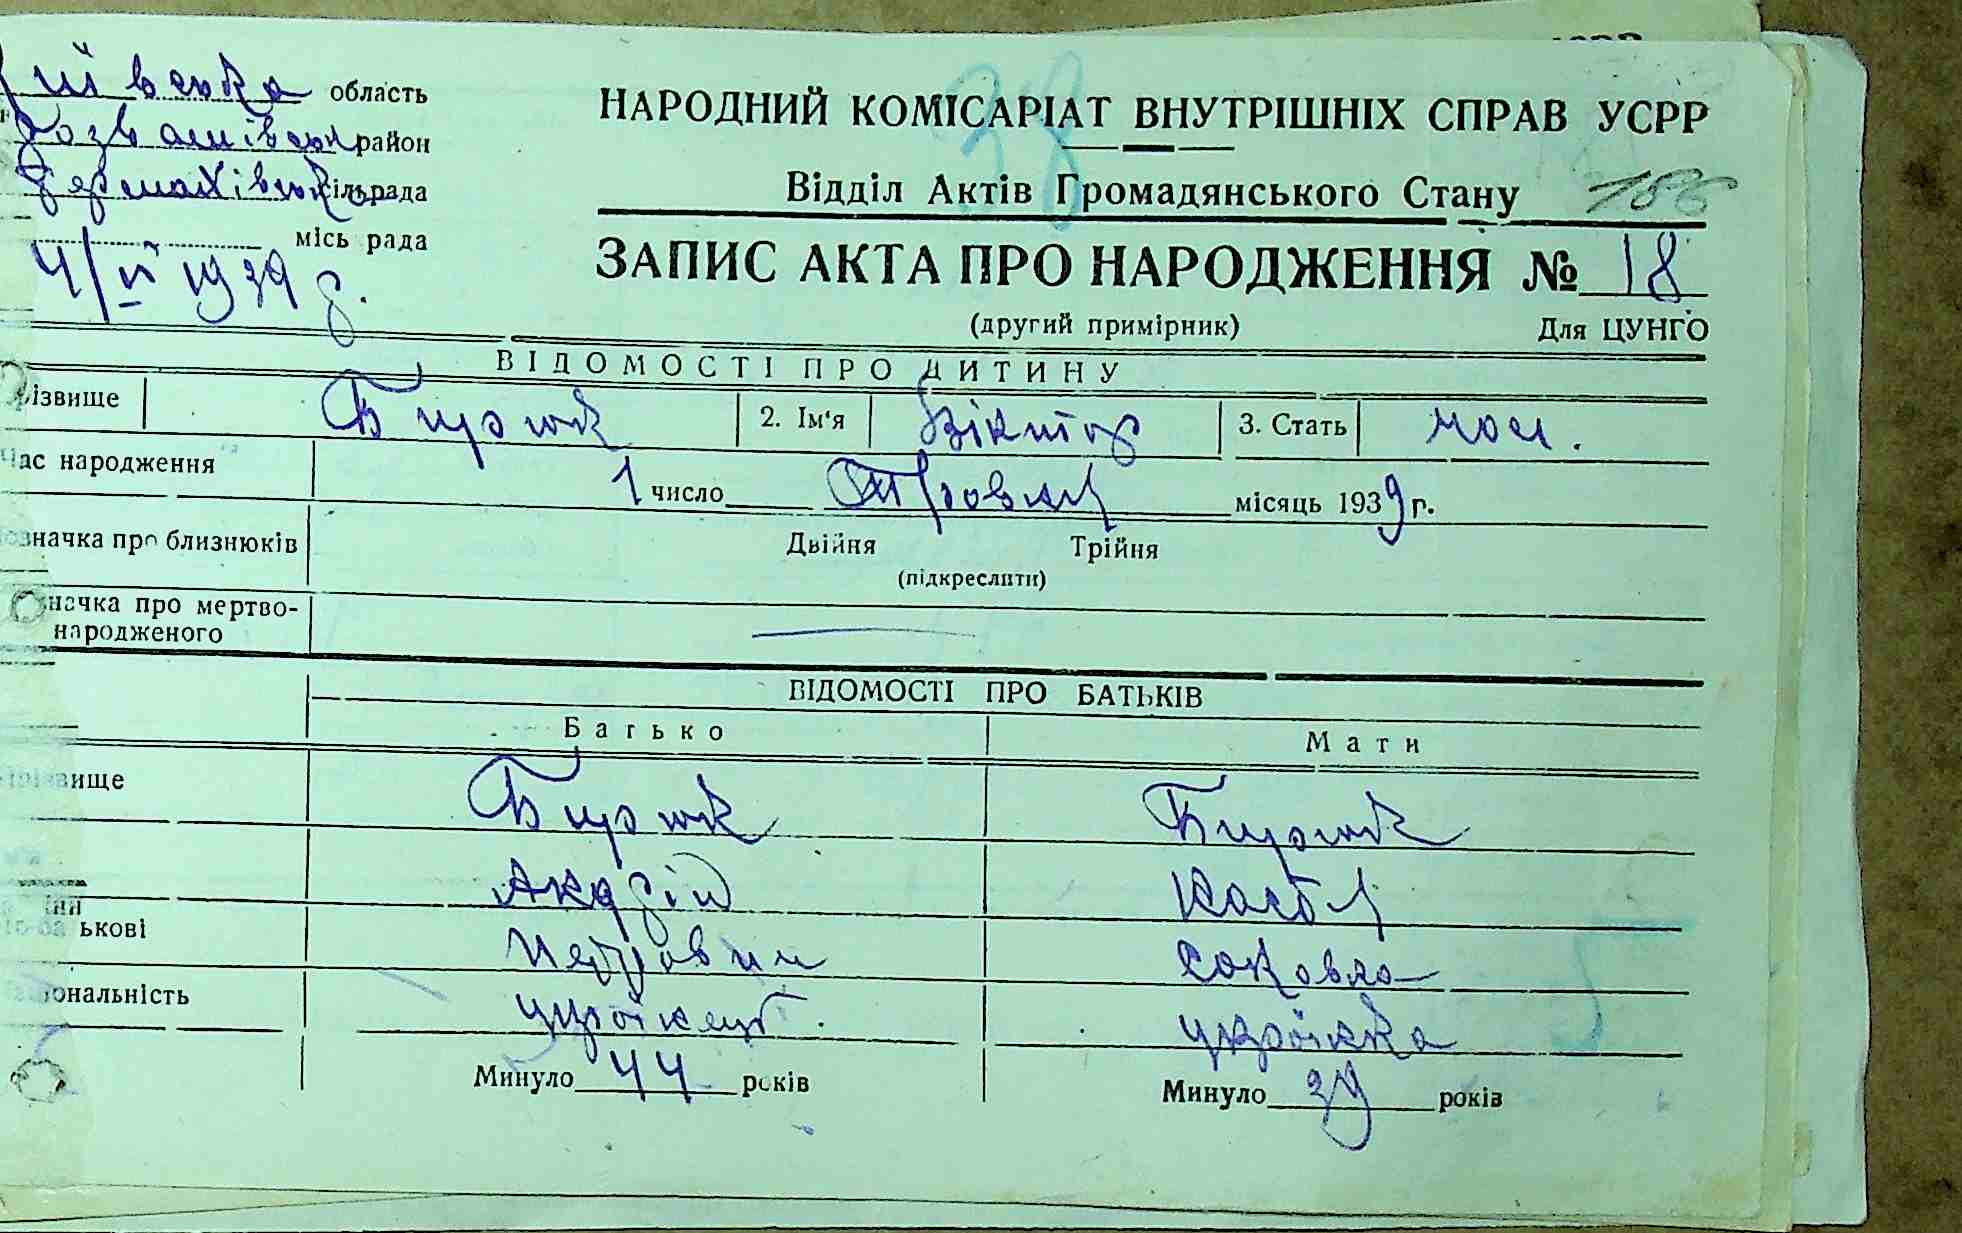 Київська область
Розважівськ район
Термахівська сільрада
місь рада
4/VI 1939 р.
38
НАРОДНИЙ КОМІСАРІАТ ВНУТРІШНІХ СПРАВ УСРР
Відділ Актів Громадянського Стану
186
ЗАПИС АКТА ПРО НАРОДЖЕННЯ № 18
(другий примірник) Для ЦУНГО
ВІДОМОСТІ ПРО ДИТИНУ
ізвище Бирюк 2. Ім'я Віктор 3. Стать чол.
Час народження 1 число місяць 1939 г.
означка про близнюків Двійня Трійня
(підкреслити)
значка про мертво-
народженого
ВІДОМОСТІ ПРО БАТЬКІВ
Батько Мати
Прізвище Бирюк Бирюк
Андрій
ькові Петрович
ціональність українець українка
Минуло 44 років Минуло 39 років